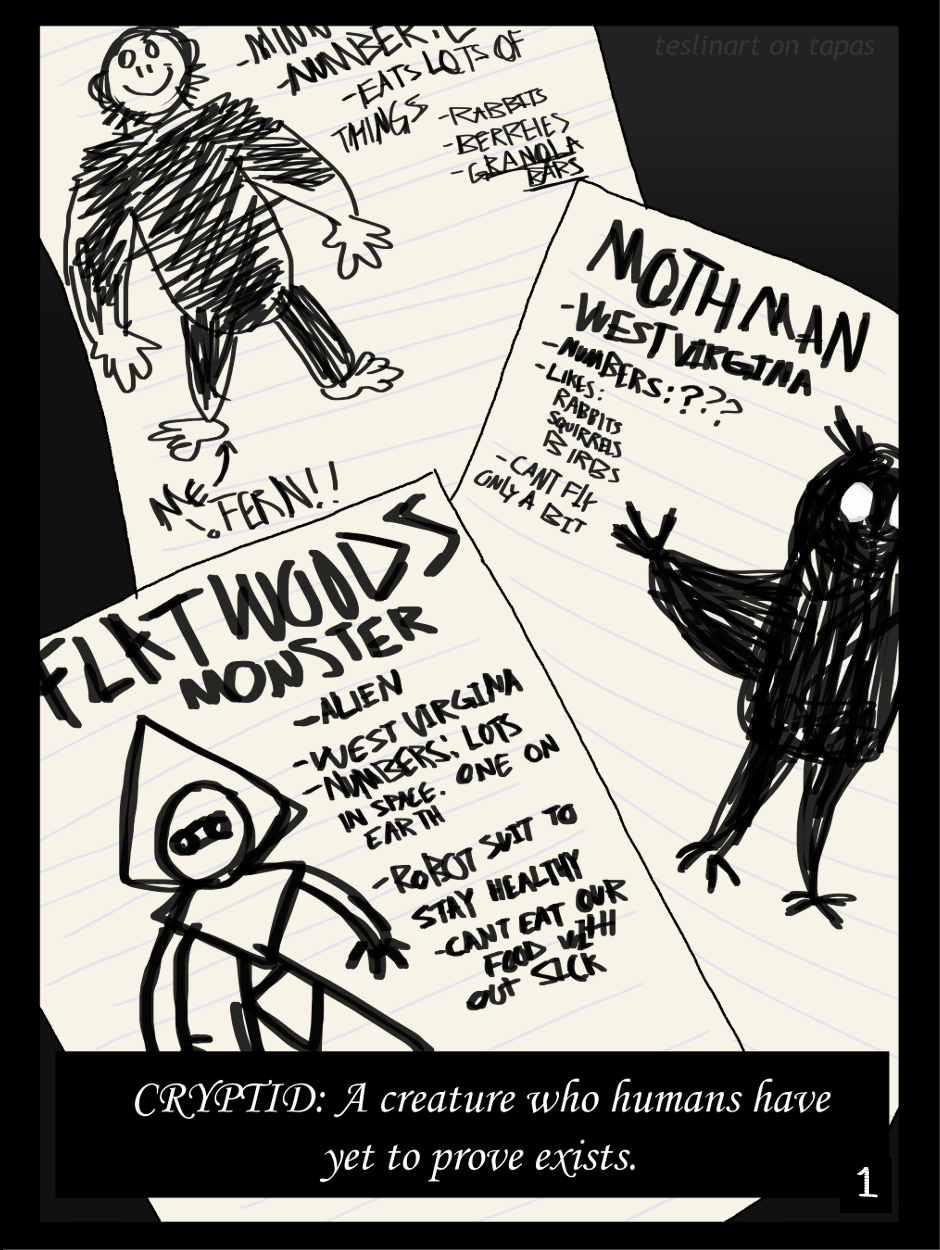 teslinart on tapas
-EATS LOTS OF
THINGS
-RABBITS
-BERREIES
-GRANOLA
BARS
ME!
FERN!!
MOTHMAN
-WEST VIRGINA
-NUMBERS:???
-LIKES:
RABBITS
SQUIRRELS
BIRBS
-CANT FLY
ONLY A BIT
FLATWOODS
MONSTER
-ALIEN
-WEST VIRGINA
-NUMBERS: LOTS
IN SPACE. ONE ON
EARTH
-ROBOT SUIT TO
STAY HEALTHY
-CANT EAT OUR
FOOD WITH
OUT SICK
CRYPTID: A creature who humans have
yet to prove exists.
1